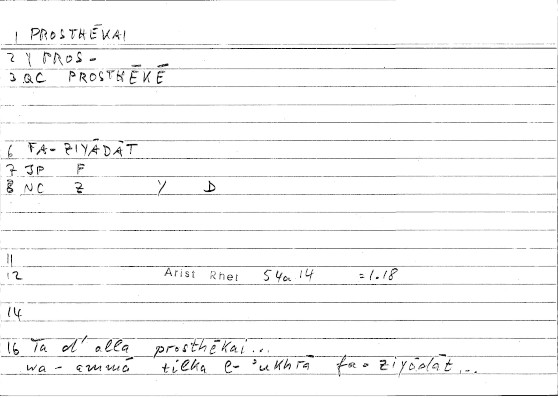 1 PROSTHĒKAI
2 Y PROS-
3 QC PROSTHĒKĒ
6 FA-ZIYĀDĀT
7 JP F
8 NC Z Y D
11
12 Arist Rhet 54a 14 =1.18
14
16 Ta d' alla prosthēkai...
wa-ammā tilka l-'ukhrā fa-ziyādāt...